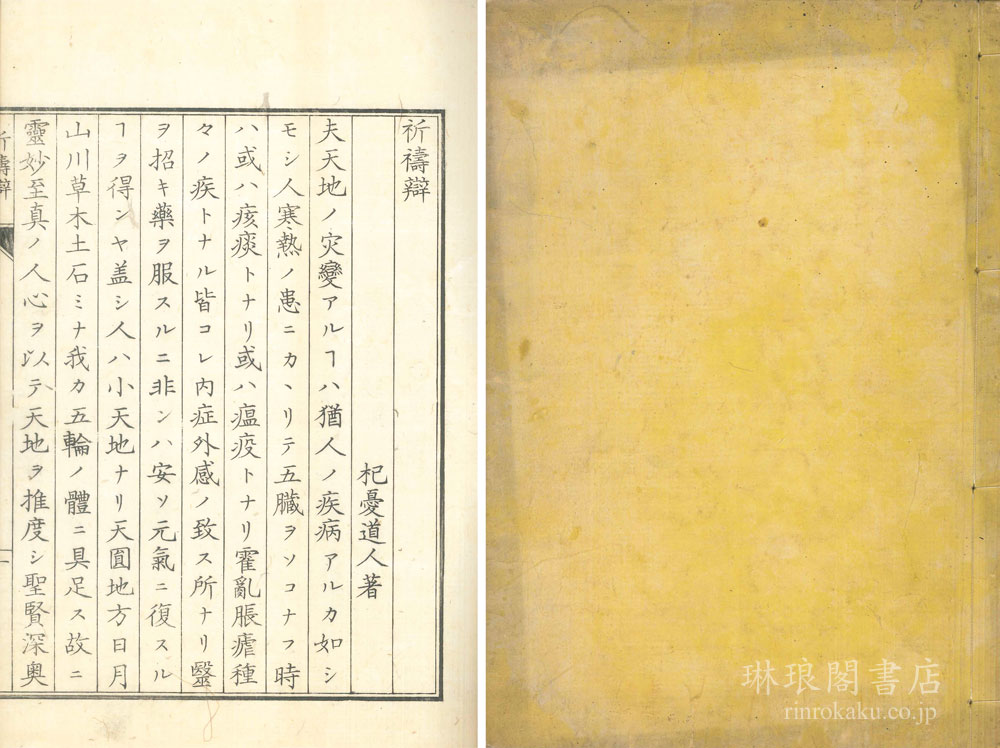 祈禱辯
杞憂道人著
夫天地ノ灾變アルヿハ猶人ノ疾病アルカ如シ
モシ人寒熱ノ患ニカヽリテ五臓ヲソコナフ時
ハ或ハ痎痰トナリ或ハ瘟疫トナリ霍亂脹瘧種
々ノ疾トナル皆コレ内症外感ノ致ス所ナリ毉
ヲ招キ藥ヲ服スルニ非ンハ安ソ元氣ニ復スル
ヿヲ得ンヤ盖シ人ハ小天地ナリ天圓地方日月
山川草木土石ミナ我カ五輪ノ體ニ具足ス故ニ
靈妙至真ノ人心ヲ以テ天地ヲ推度シ聖賢深奥
祈禱辯
一
琳琅閣書店
rinrokaku.co.jp